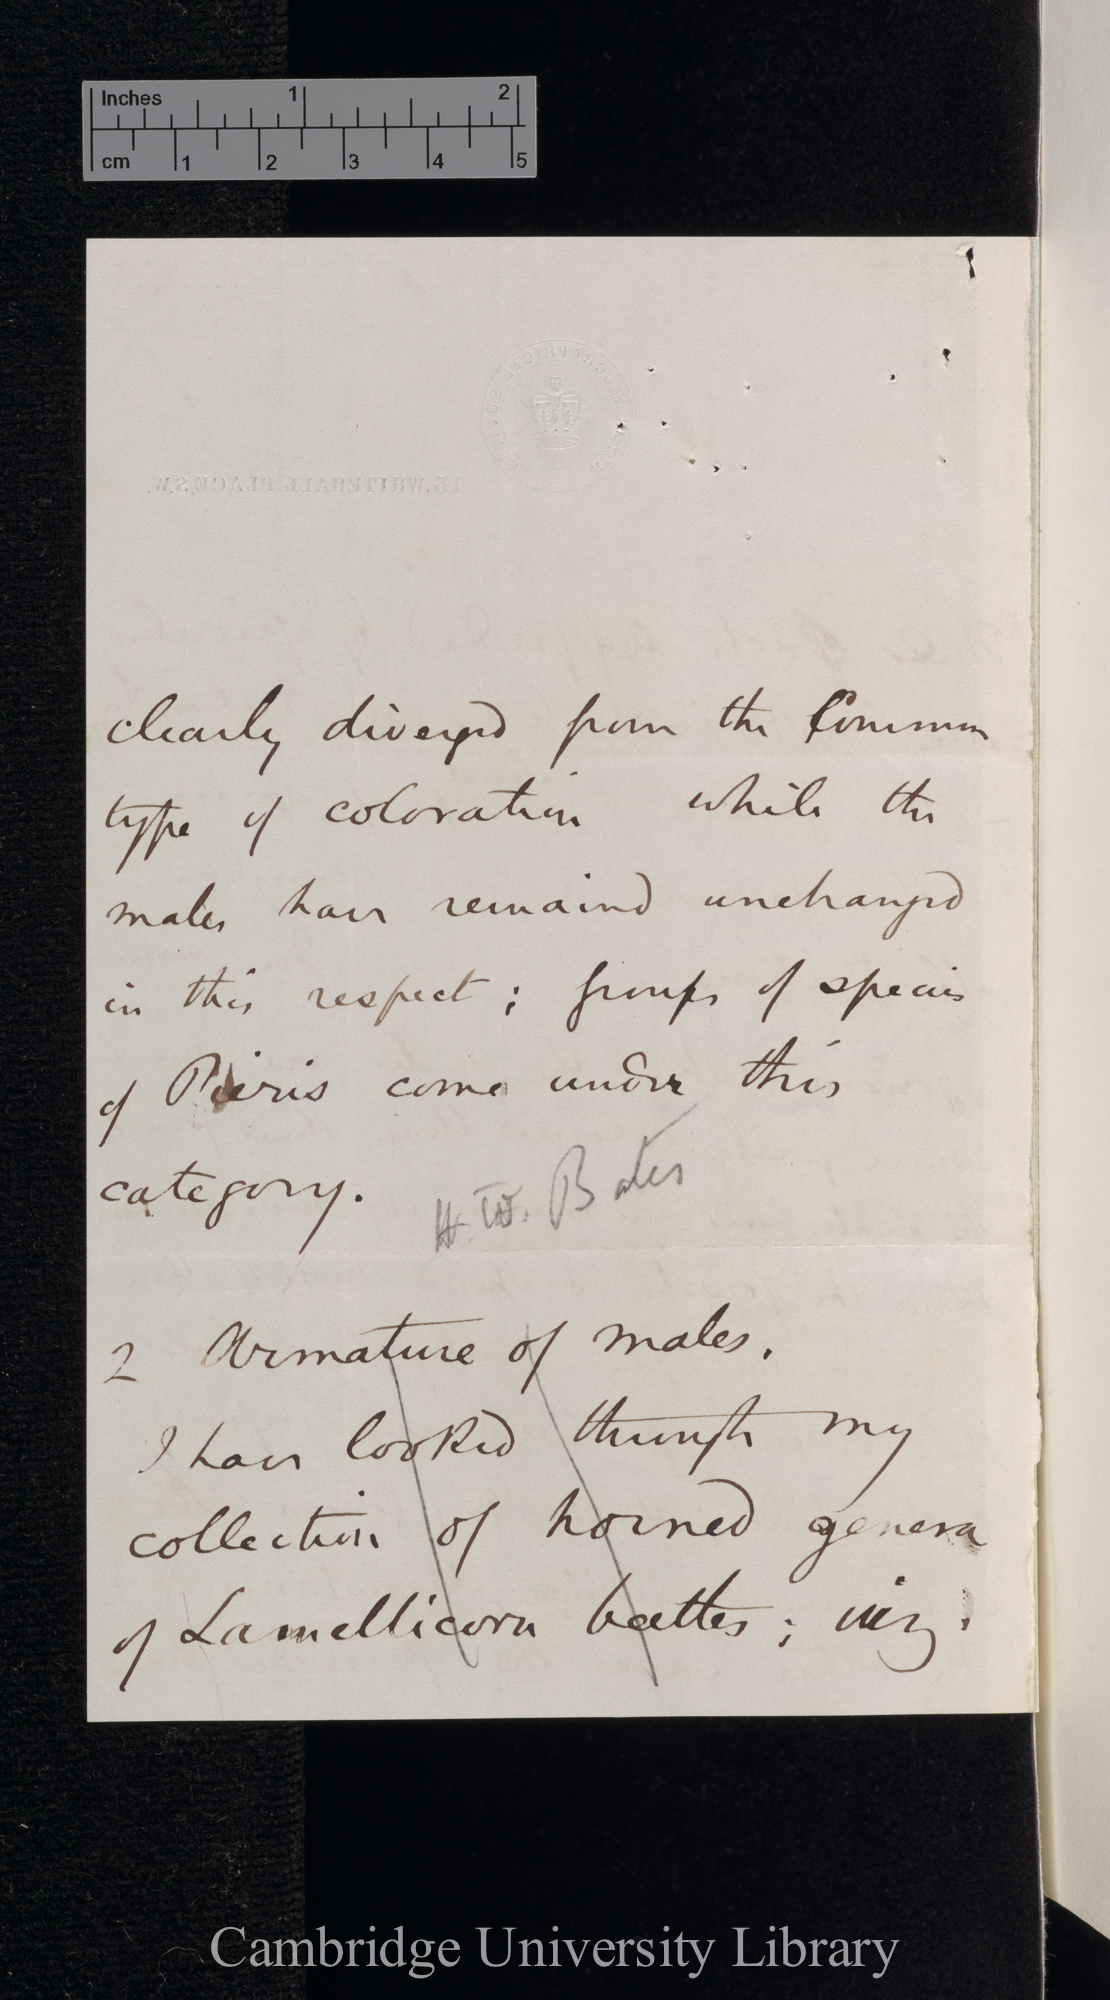 Inches 1 2
cm 1 2 3 4 5
ROYAL GEOGRAPHICAL SOCIETY
15, WHITEHALL PLACE, S.W.
clearly diverged from the Common
type of coloration while the
males have remained unchanged
in this respect; groups of species
of Pieris come under this
category.
H. W. Bates
2 Armature of males.
I have looked through my
collection of horned genera
of Lamellicorn beetles; viz.
Cambridge University Library